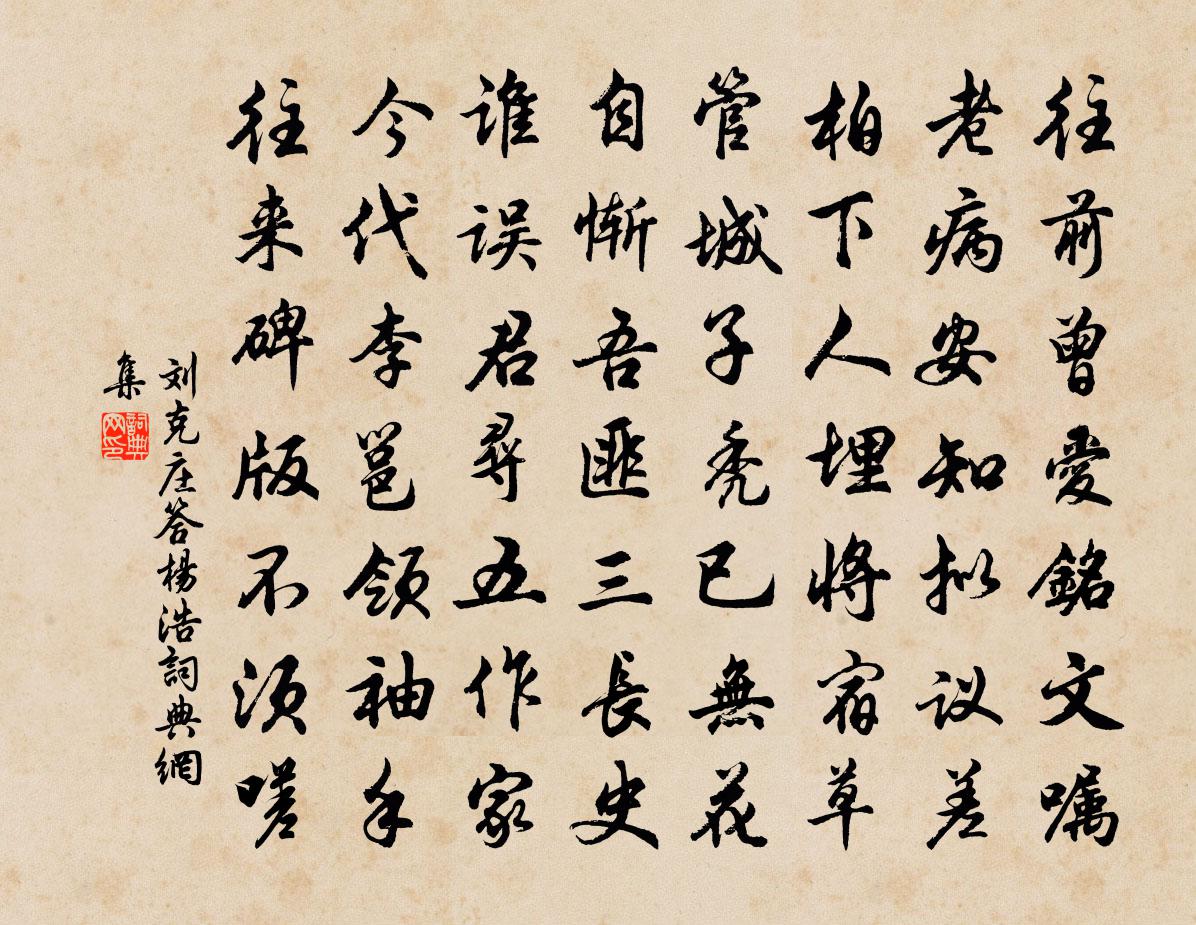 往前曾愛銘文嘱
老病安知拟议差
柏下人埋將宿草
管城子秃已無花
自惭吾匪三長史
谁误君尋五作家
今代李邕领袖手
往来碑版不须嗟
刘克庄答楊浩詞典網
集
詞典网印